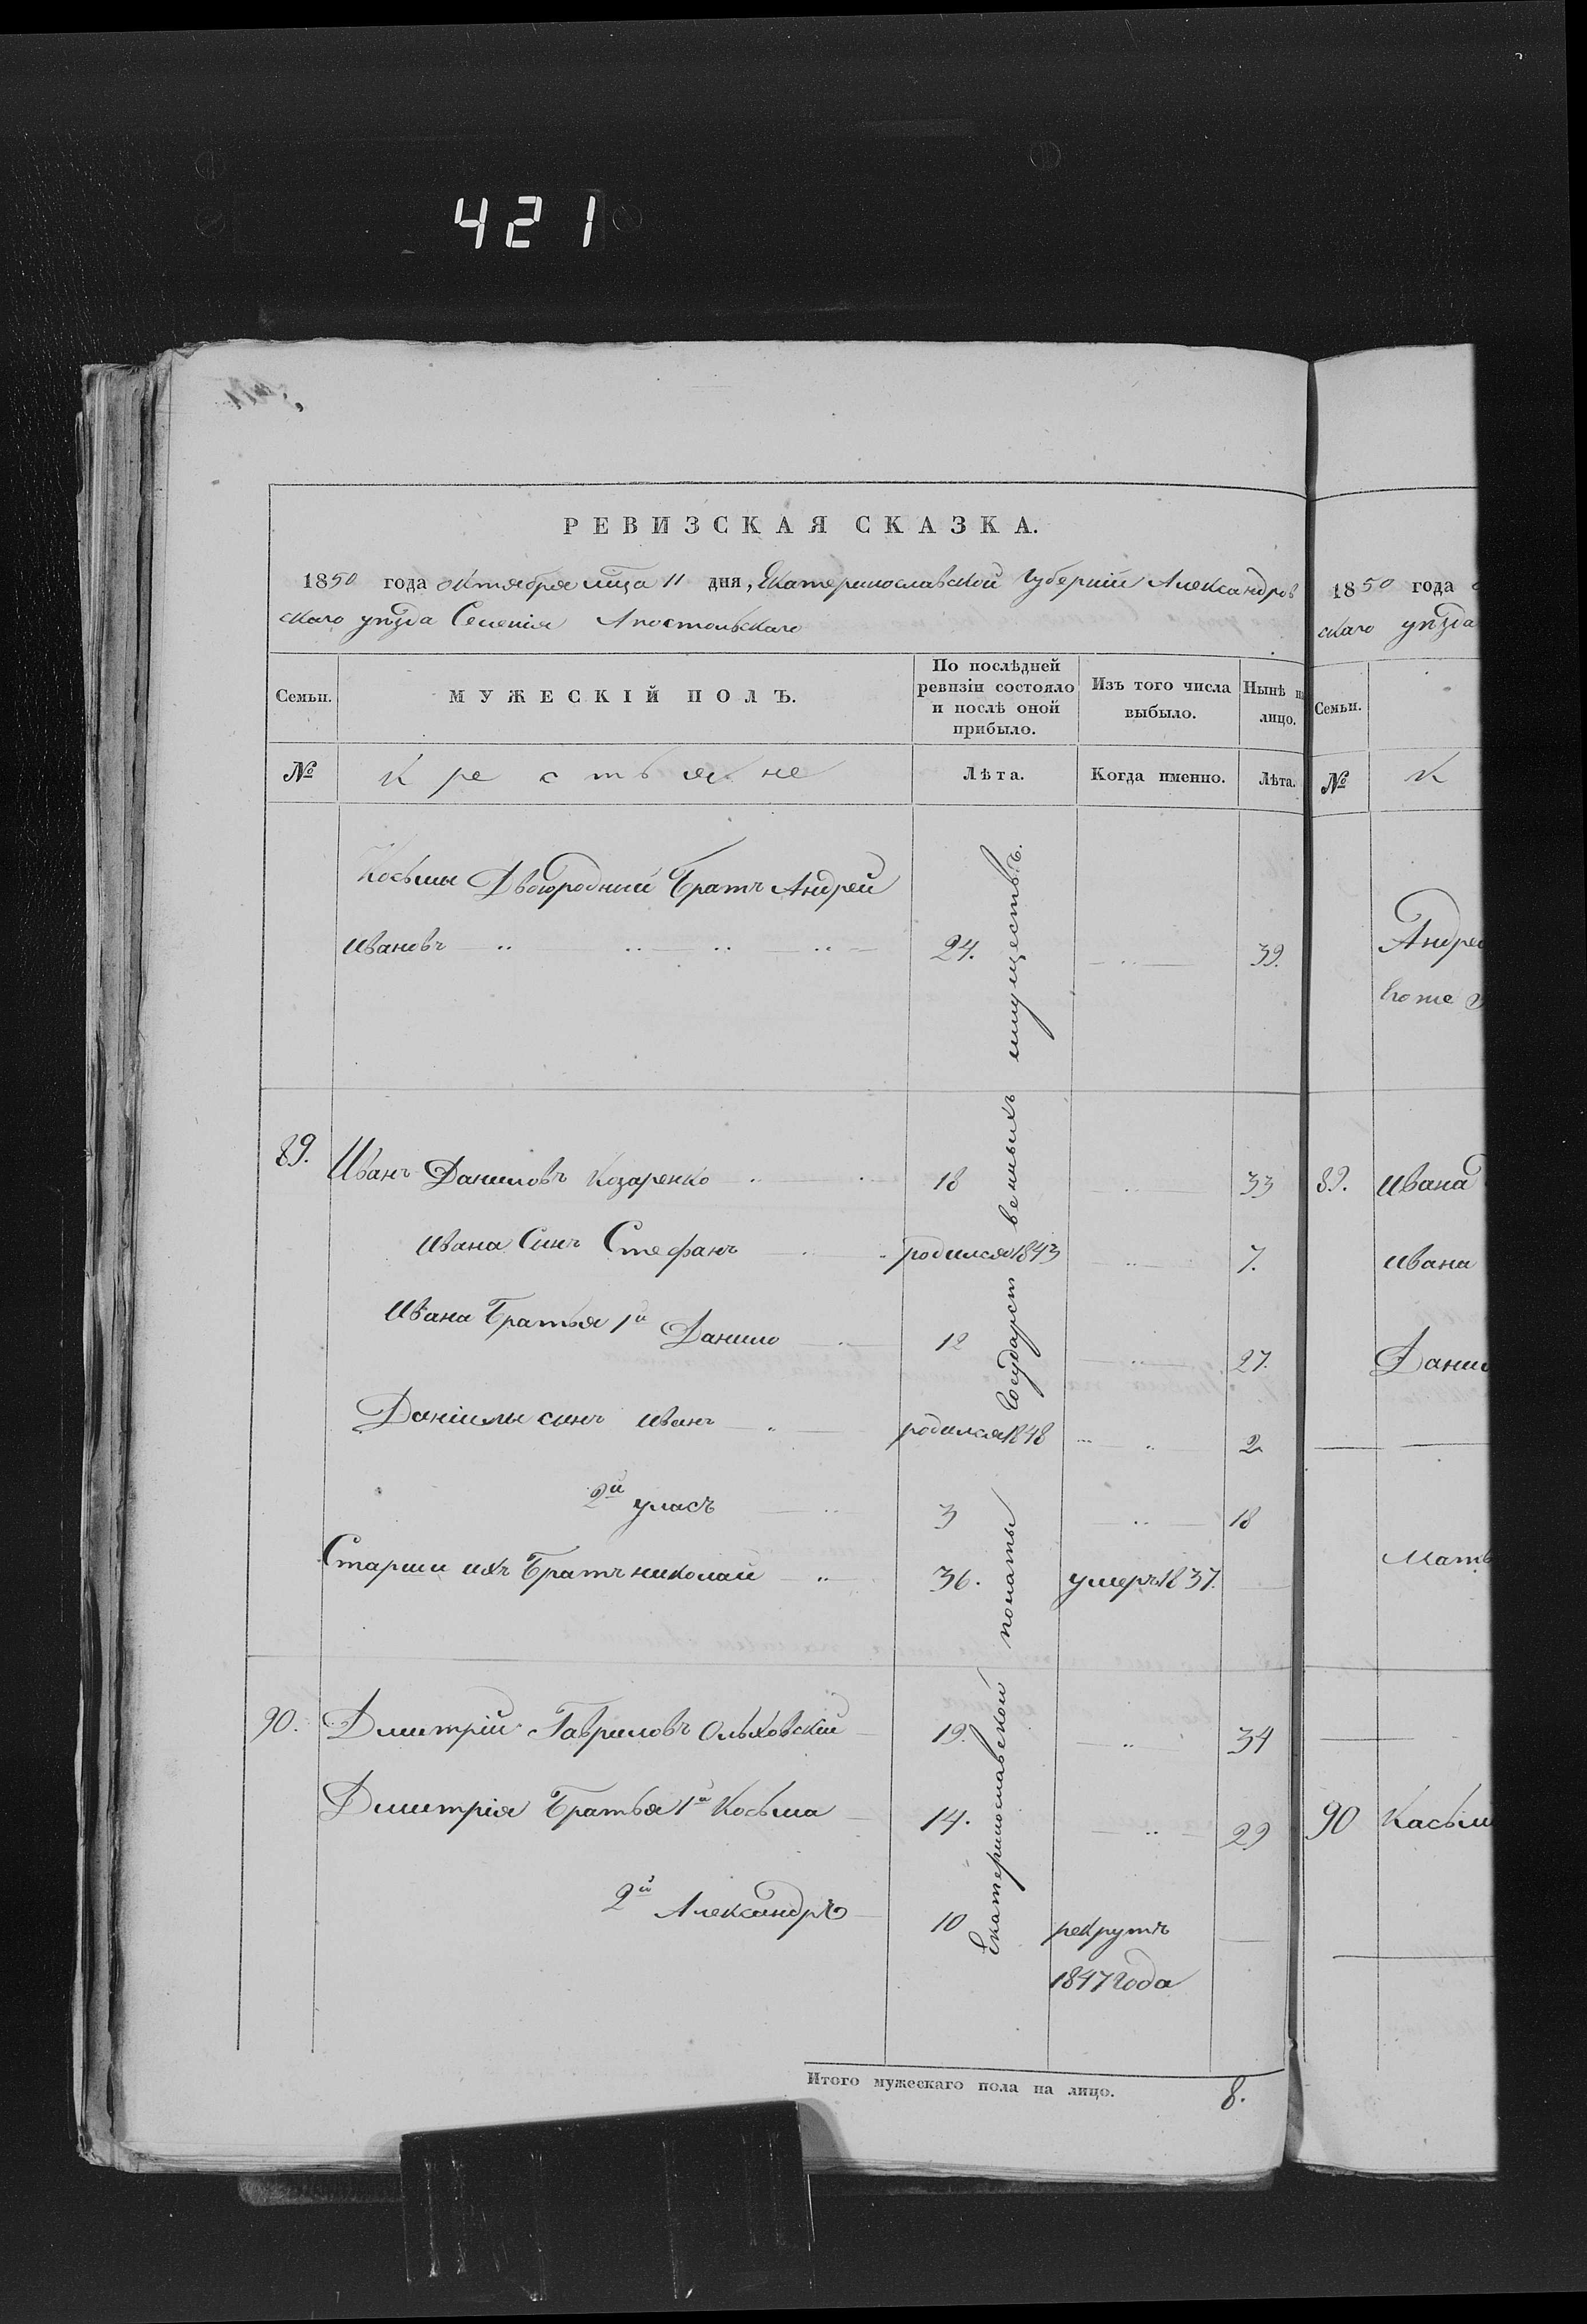 421
РЕВИЗСКАЯ СКАЗКА.
1850 года октября мца 11 дня, Екатеринославской Губерніи Александров
скаго уѣзда Селенія Апостольскаго
Семьи.
МУЖЕСКІЙ ПОЛЪ.
По послѣдней ревизіи состояло и послѣ оной прибыло.
Изъ того числа выбыло.
Нынѣ на лицо.
№
Крестьяне
Лѣта.
Когда именно.
Лѣта.
Косьмы Двоюродний Братъ Андрей
Ивановъ 24. 39.
89. Иванъ Даниловъ Козаренко 18 33
Ивана Синъ Стефанъ родился 1843 7.
Ивана Братья 1й Данило 12 27.
Данiилы синъ Иванъ родился 1848 2
2й уласъ 3 18
Старши ихъ Братъ николай 36. умеръ 1837.
90. Дмитрій Гавриловъ Ольховскій 19. 34
Дмитрія Братья 1й Косьма 14. 29
2й Александръ 10 рекрутъ
1847 года
Екатеринославской полаты Государственныхъ имуществъ.
Итого мужескаго пола на лицо. 8.
1850 года
скаго уѣзда
Семьи.
№ К
Андре
Его же
89. Ивана
Ивана
Данил
Мать
90 Касьм